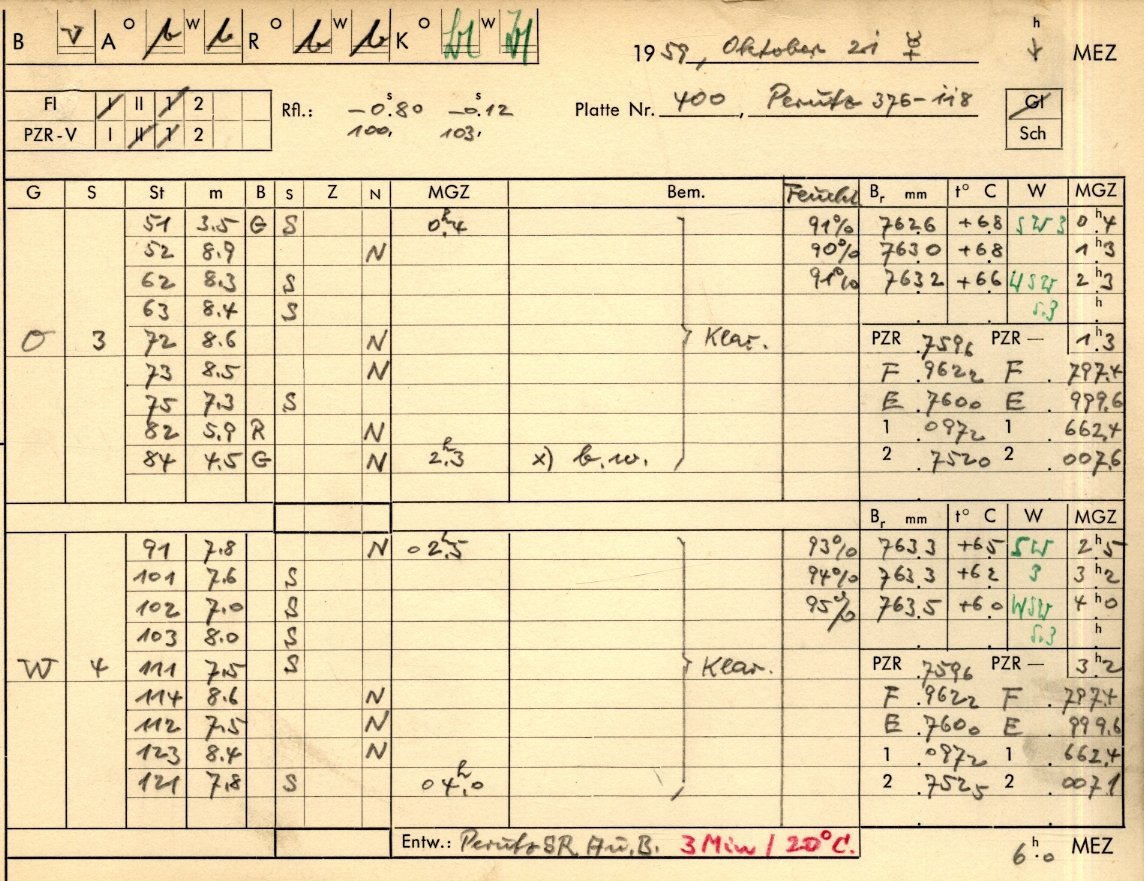 B v A O b W b R O b W b K O bl W bl 1959, Oktober 21 h MEZ
FI I II 1 2 Rfl.: -0.80 s -0.12 s Platte Nr. 400, Perutz 376-118 Gl
PZR-V I II 1 2 100, 103, Sch
G S St m B S Z N MGZ Bem. Feucht Br mm t° C W MGZ
51 3.5 G S 0h.4 91% 762.6 +6.8 SW 3 0h.4
52 8.9 N 90% 763.0 +6.8 1h.3
62 8.3 S 91% 763.2 +6.6 WSW 2h.3
63 8.4 S 5.3 h
O 3 72 8.6 N Klar. PZR .7596 PZR — 1h.3
73 8.5 N F .9622 F 797.4
75 7.3 S E .7600 E 999.6
82 5.9 R N 1 .0972 1 662.4
84 4.5 G N 2h.3 x) b.w. 2 .7520 2 007.6
Br mm t° C W MGZ
91 7.8 N 02h.5 93% 763.3 +6.5 SW 2h.5
101 7.6 S 94% 763.3 +6.2 3 3h.2
102 7.0 S 95% 763.5 +6.0 WSW 4h.0
103 8.0 S 5.3 h
W 4 111 7.5 S Klar. PZR .7596 PZR — 3h.2
114 8.6 N F .9622 F 797.4
112 7.5 N E .7600 E 999.6
123 8.4 N 1 .0972 1 662.4
121 7.8 S 04h.0 2 .7525 2 007.1
Entw.: Perutz SR A u. B. 3 Min / 20°C. 6h.0 MEZ